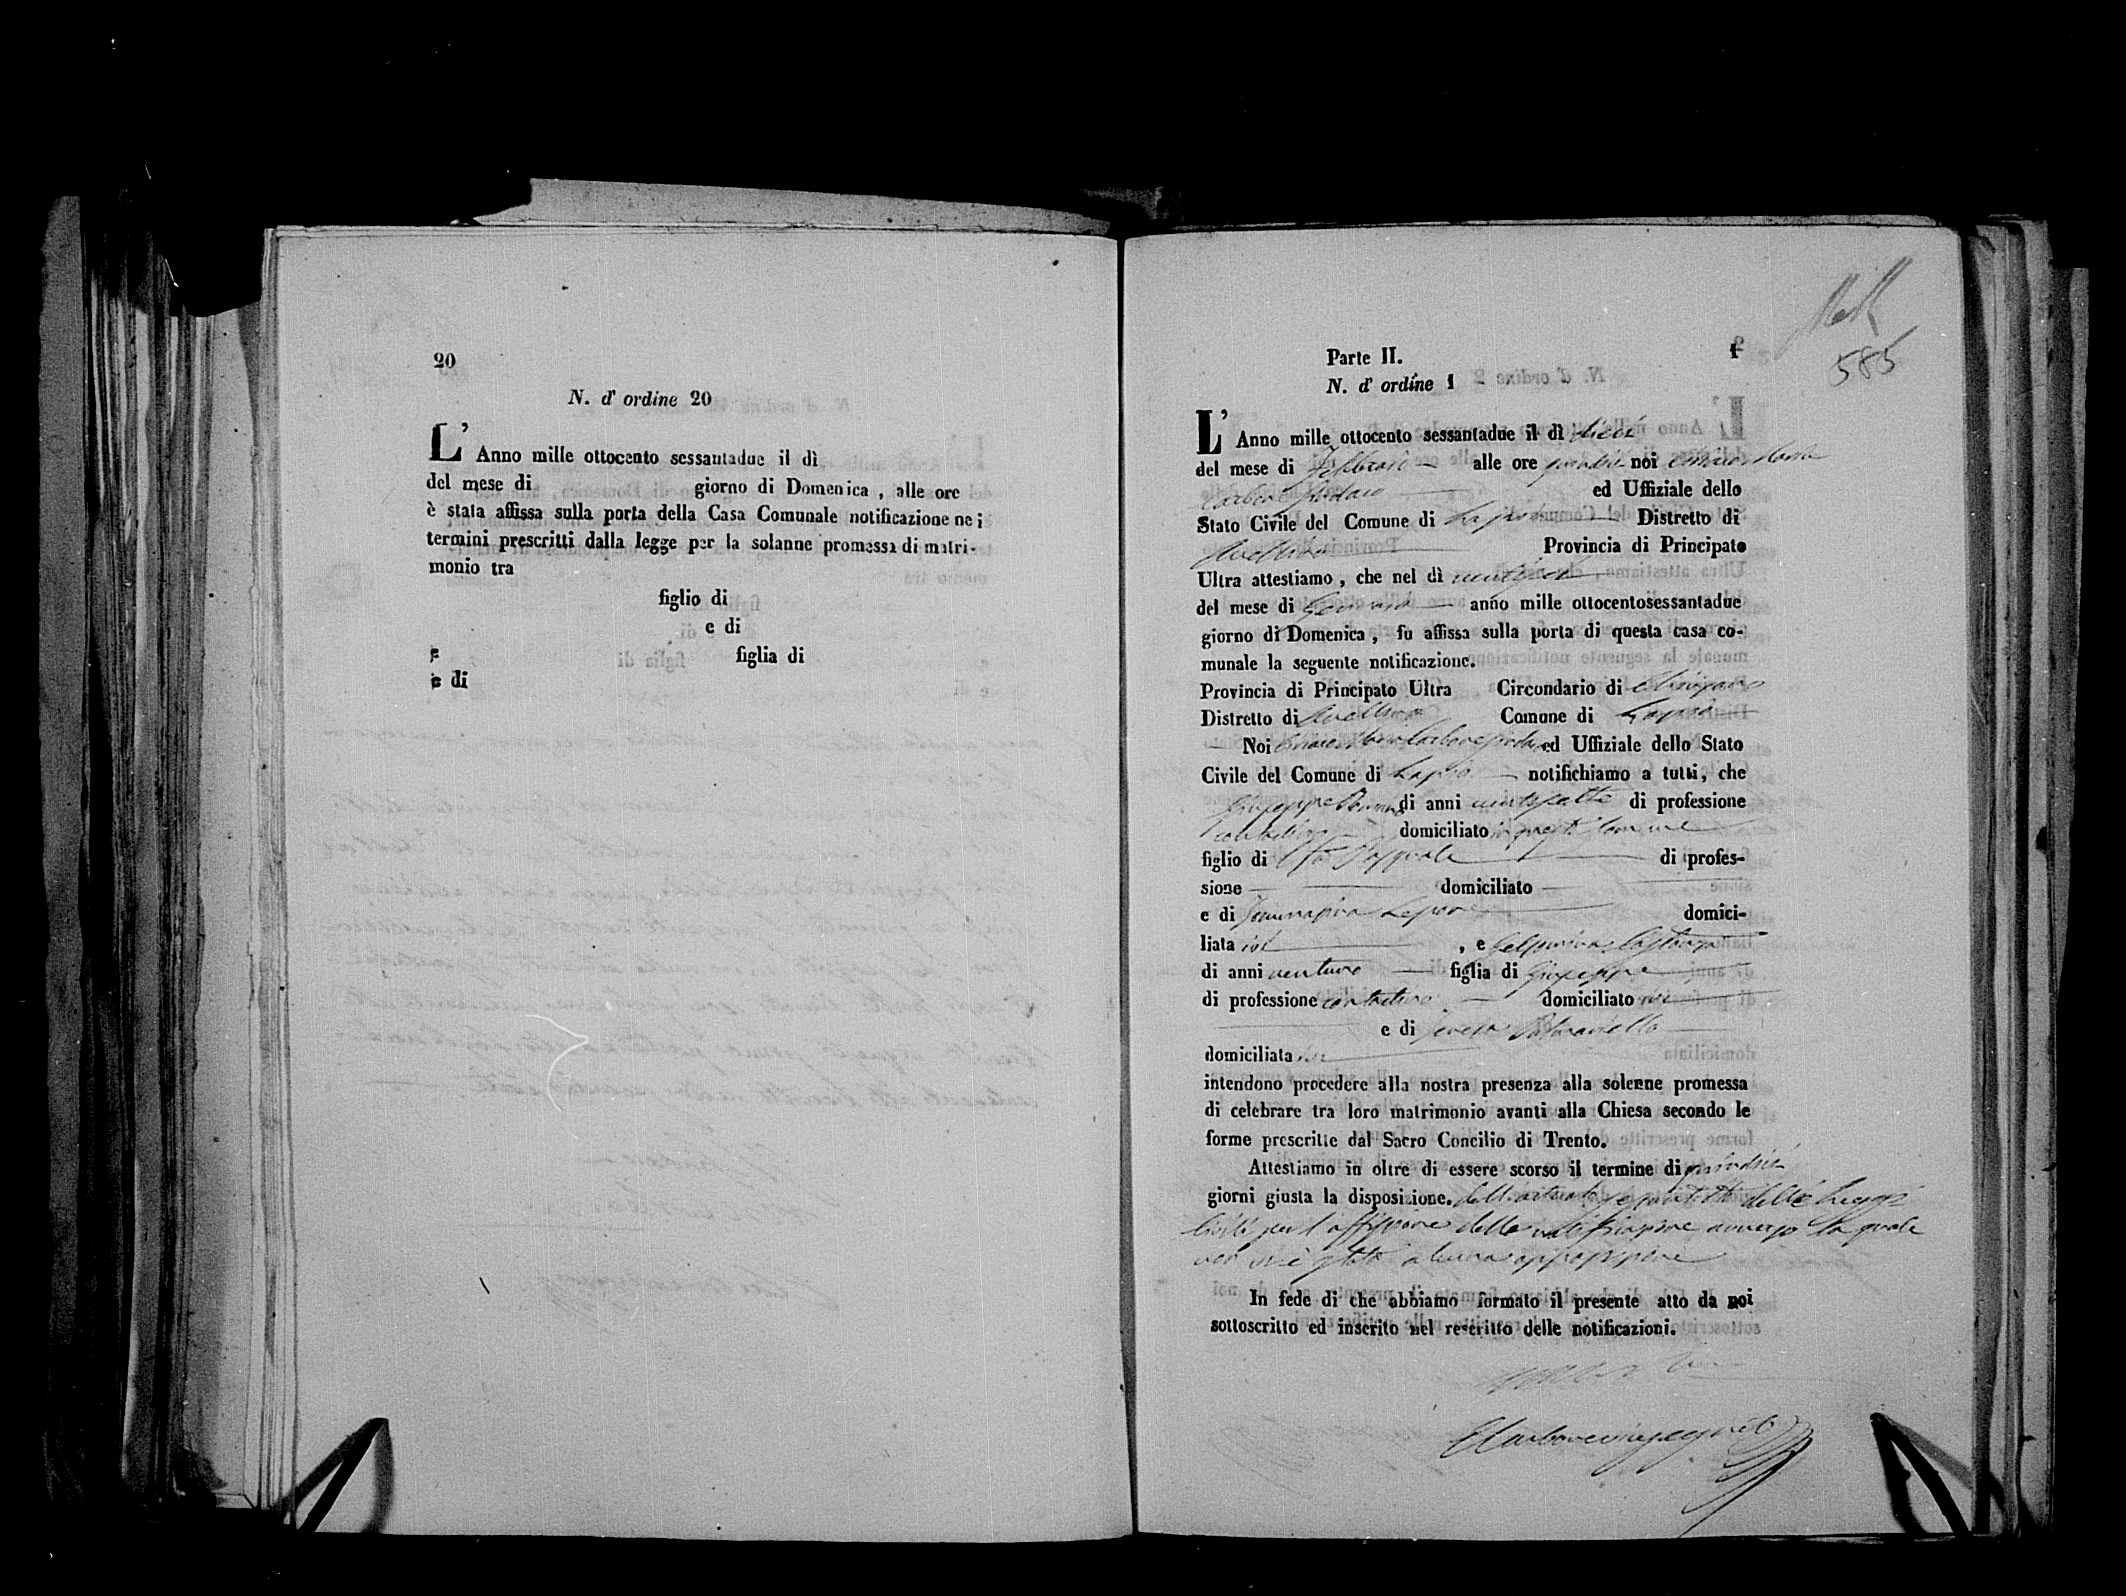 20
N. d' ordine 20
L' Anno mille ottocento sessantadue il dì
del mese di giorno di Domenica, alle ore
è stata affissa sulla porta della Casa Comunale notificazione nei
termini prescritti dalla legge per la solanne promessa di matri-
monio tra
figlio di
e di
e figlia di
e di
Parte II. 1
585
N. d' ordine 1
L' Anno mille ottocento sessantadue il dì dieci
del mese di Febbraio alle ore quindici noi
Carbone Sindaco ed Uffiziale dello
Stato Civile del Comune di Lapio Distretto di
Avellino Provincia di Principato
Ultra attestiamo, che nel dì
del mese di Gennaro anno mille ottocentosessantadue
giorno di Domenica, fu affissa sulla porta di questa casa co-
munale la seguente notificazione.
Provincia di Principato Ultra Circondario di
Distretto di Avellino Comune di Lapio
Noi Carbone Sindaco ed Uffiziale dello Stato
Civile del Comune di Lapio notifichiamo a tutti, che
Giuseppe di anni ventisette di professione
contadino domiciliato in questo Comune
figlio di fu Pasquale di profes-
sione domiciliato
e di Lepore domici-
liata ivi , e
di anni ventuno figlia di Giuseppe
di professione contadino domiciliato ivi
e di
domiciliata ivi
intendono procedere alla nostra presenza alla solenne promessa
di celebrare tra loro matrimonio avanti alla Chiesa secondo le
forme prescritte dal Sacro Concilio di Trento.
Attestiamo in oltre di essere scorso il termine di quindici
giorni giusta la disposizione. dell'articolo delle Leggi
Civili per l'affissione della notificazione avverso la quale
non vi è stata alcuna opposizione
In fede di che abbiamo formato il presente atto da noi
sottoscritto ed inscrito nel rescritto delle notificazioni.